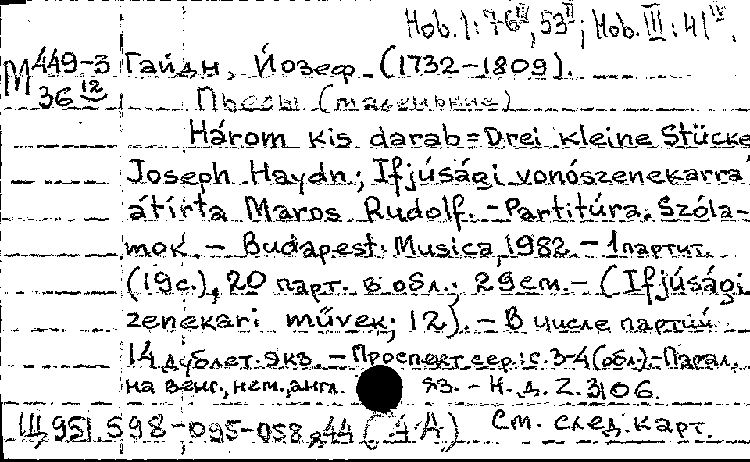 Hob. I: 76 II, 53 II; Hob. III: 41 IV.
М 449-3 Гайдн, Йозеф. (1732-1809).
36 12 Пьесы (маленькие)
Három kis darab = Drei kleine Stücke
Joseph Haydn; Ifjúsági vonószenekarra
átírta Maros Rudolf. - Partitúra. Szóla-
mok. - Budapest: Musica, 1982. - 1 партит.
(19с.), 20 парт. в обл.; 29см. - (Ifjúsági
zenekari művek; 12). - В числе партий
14 дублет. экз. - Проспект сер.: с. 3-4 (обл.) - Парал.
на венг., нем., англ. яз. - Н. д. Z. 3106.
Щ951.598-095-058.я44 (4А) См. след. карт.